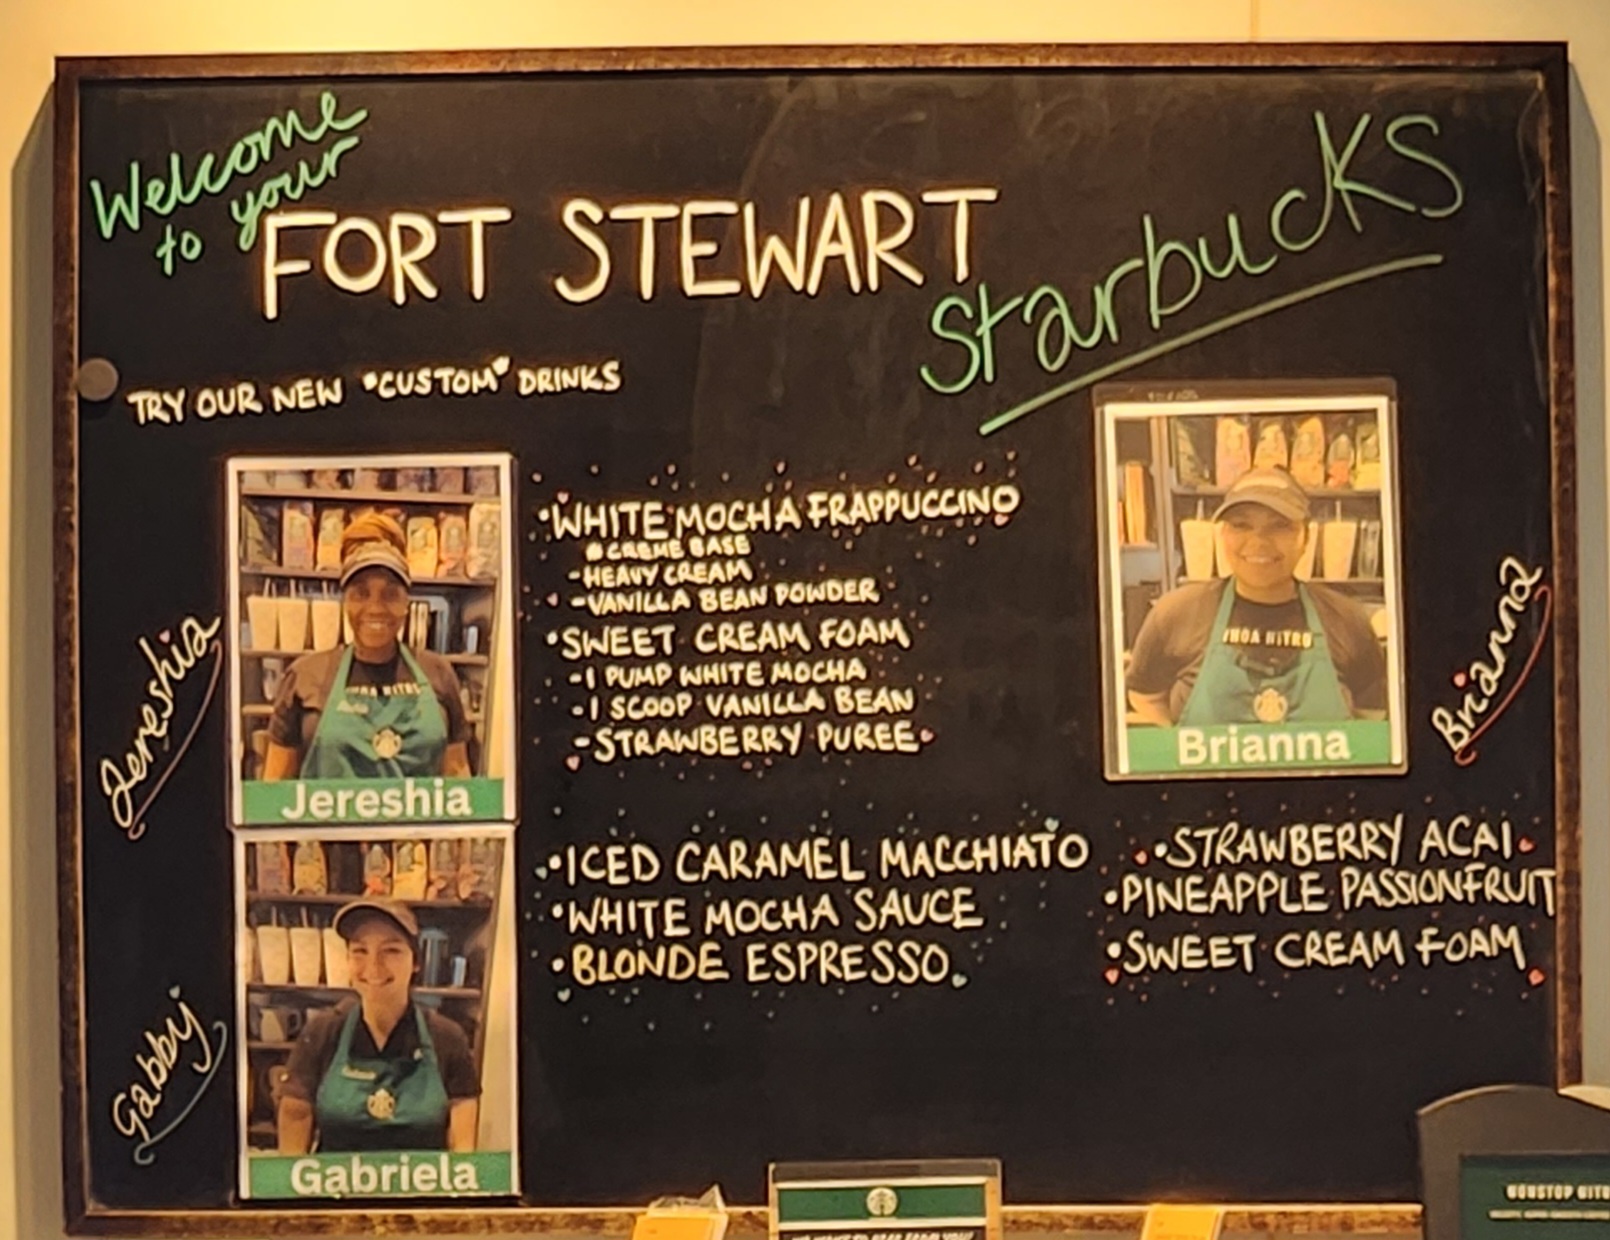 Welcome
to your
FORT STEWART
Starbucks
TRY OUR NEW "CUSTOM" DRINKS
Jereshia
WHOA NITRO
Jereshia
•WHITE MOCHA FRAPPUCCINO
CREME BASE
-HEAVY CREAM
-VANILLA BEAN POWDER
•SWEET CREAM FOAM
-1 PUMP WHITE MOCHA
-1 SCOOP VANILLA BEAN
-STRAWBERRY PUREE
WHOA NITRO
Brianna
Brianna
Gabby
Gabriela
•ICED CARAMEL MACCHIATO
•WHITE MOCHA SAUCE
•BLONDE ESPRESSO
•STRAWBERRY ACAI
•PINEAPPLE PASSIONFRUIT
•SWEET CREAM FOAM
NONSTOP NITR